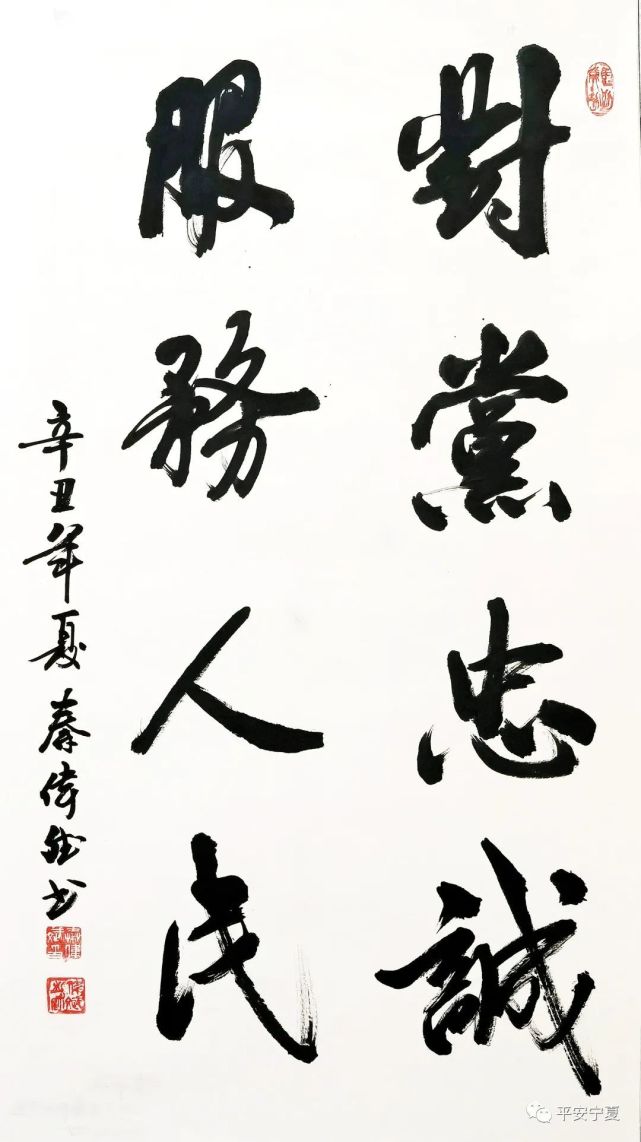 對黨忠誠
服務人民
辛丑年夏秦偉斌书
平安宁夏